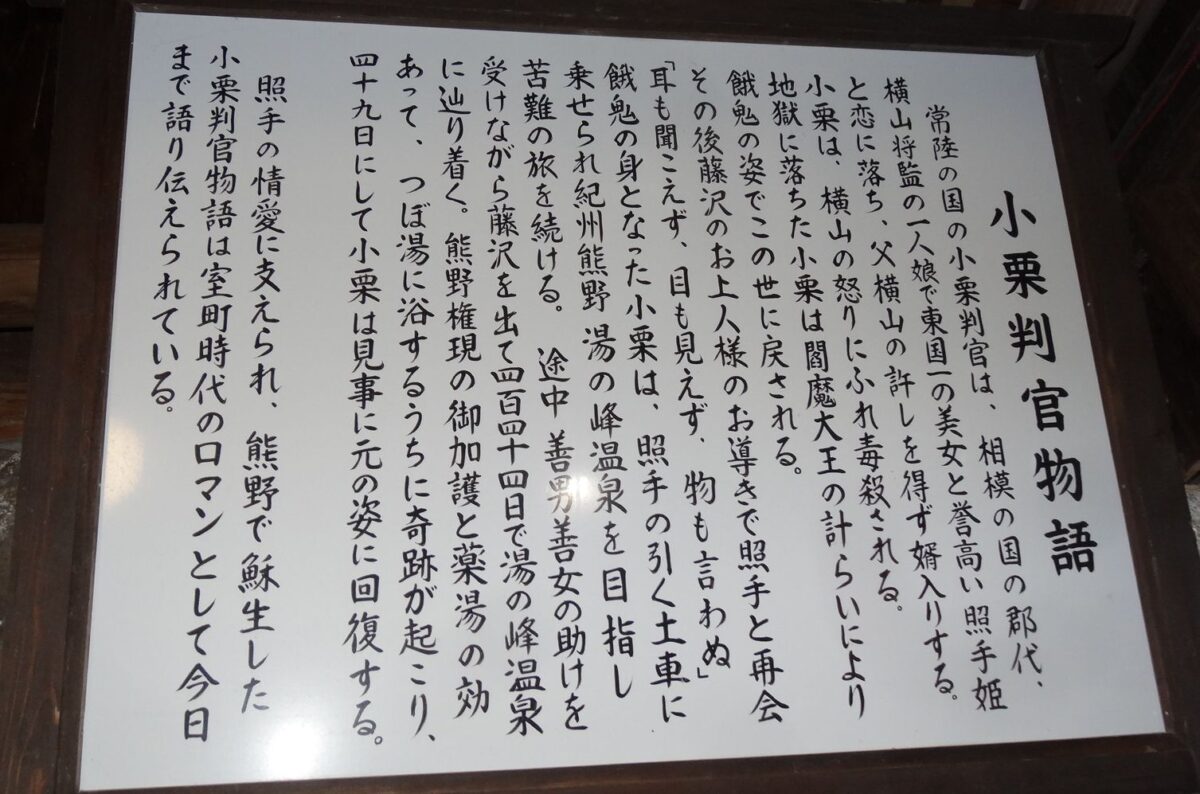 小栗判官物語
常陸の国の小栗判官は、相模の国の郡代、
横山将監の一人娘で東国一の美女と誉高い照手姫
と恋に落ち、父横山の許しを得ず婿入りする。
小栗は、横山の怒りにふれ毒殺される。
地獄に落ちた小栗は閻魔大王の計らいにより
餓鬼の姿でこの世に戻される。
その後藤沢のお上人様のお導きで照手と再会
「耳も聞こえず、目も見えず、物も言わぬ」
餓鬼の身となった小栗は、照手の引く土車に
乗せられ紀州熊野湯の峰温泉を目指し
苦難の旅を続ける。途中善男善女の助けを
受けながら藤沢を出て四百四十四日で湯の峰温泉
に辿り着く。熊野権現の御加護と薬湯の効
あって、つぼ湯に浴するうちに奇跡が起こり、
四十九日にして小栗は見事に元の姿に回復する。
照手の情愛に支えられ、熊野で穌生した
小栗判官物語は室町時代のロマンとして今日
まで語り伝えられている。